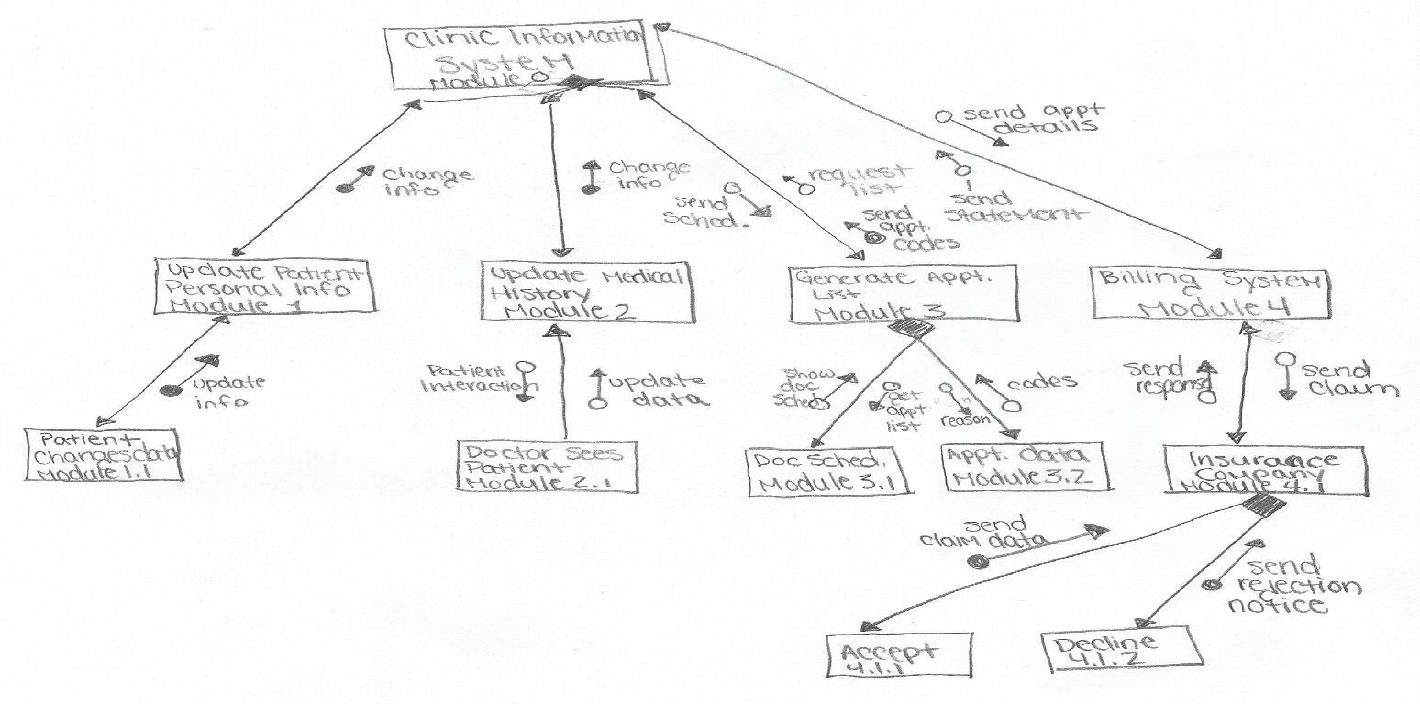 Clinic Information
System
Module 0
send appt
details
change
info
change
info
send
sched.
request
list
send
appt.
codes
send
statement
Update Patient
Personal Info
Module 1
Update Medical
History
Module 2
Generate Appt.
List
Module 3
Billing System
Module 4
update
info
Patient
Interaction
update
data
show
doc
sched
get
appt
list
reason
codes
send
respons
send
claim
Patient
Changes data
Module 1.1
Doctor Sees
Patient
Module 2.1
Doc Sched.
Module 3.1
Appt. data
Module 3.2
Insurance
Company
Module 4.1
send
claim data
send
rejection
notice
Accept
4.1.1
Decline
4.1.2